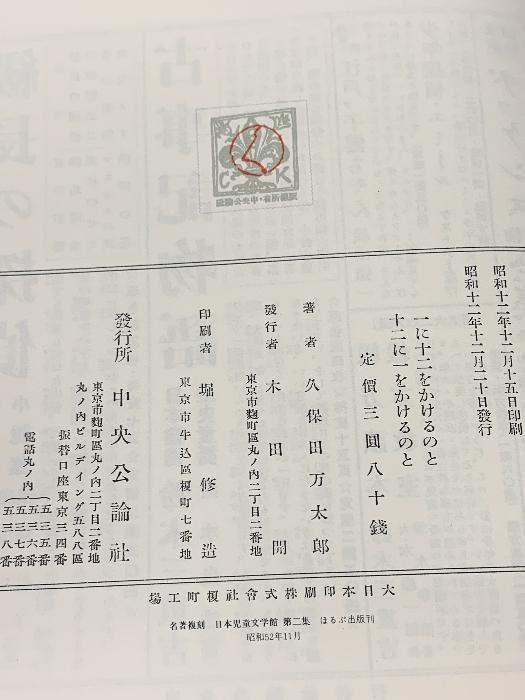 版權所有・中央公論社
昭和十二年十二月十五日印刷
昭和十二年十二月二十日發行
一に十二をかけるのと
十二に一をかけるのと
定價三圓八十錢
著者 久保田万太郎
發行者 木田開
東京市麴町區丸ノ內二丁目二番地
印刷者 堀修造
東京市牛込區榎町七番地
發行所 中央公論社
東京市麴町區丸ノ內二丁目二番地
丸ノ內ビルデイング五八八區
振替口座東京三四番
電話丸ノ內
五三五番
五三六番
五三七番
五三八番
大日本印刷株式會社榎町工場
名著複刻 日本児童文学館 第二集 ほるぷ出版刊
昭和52年11月